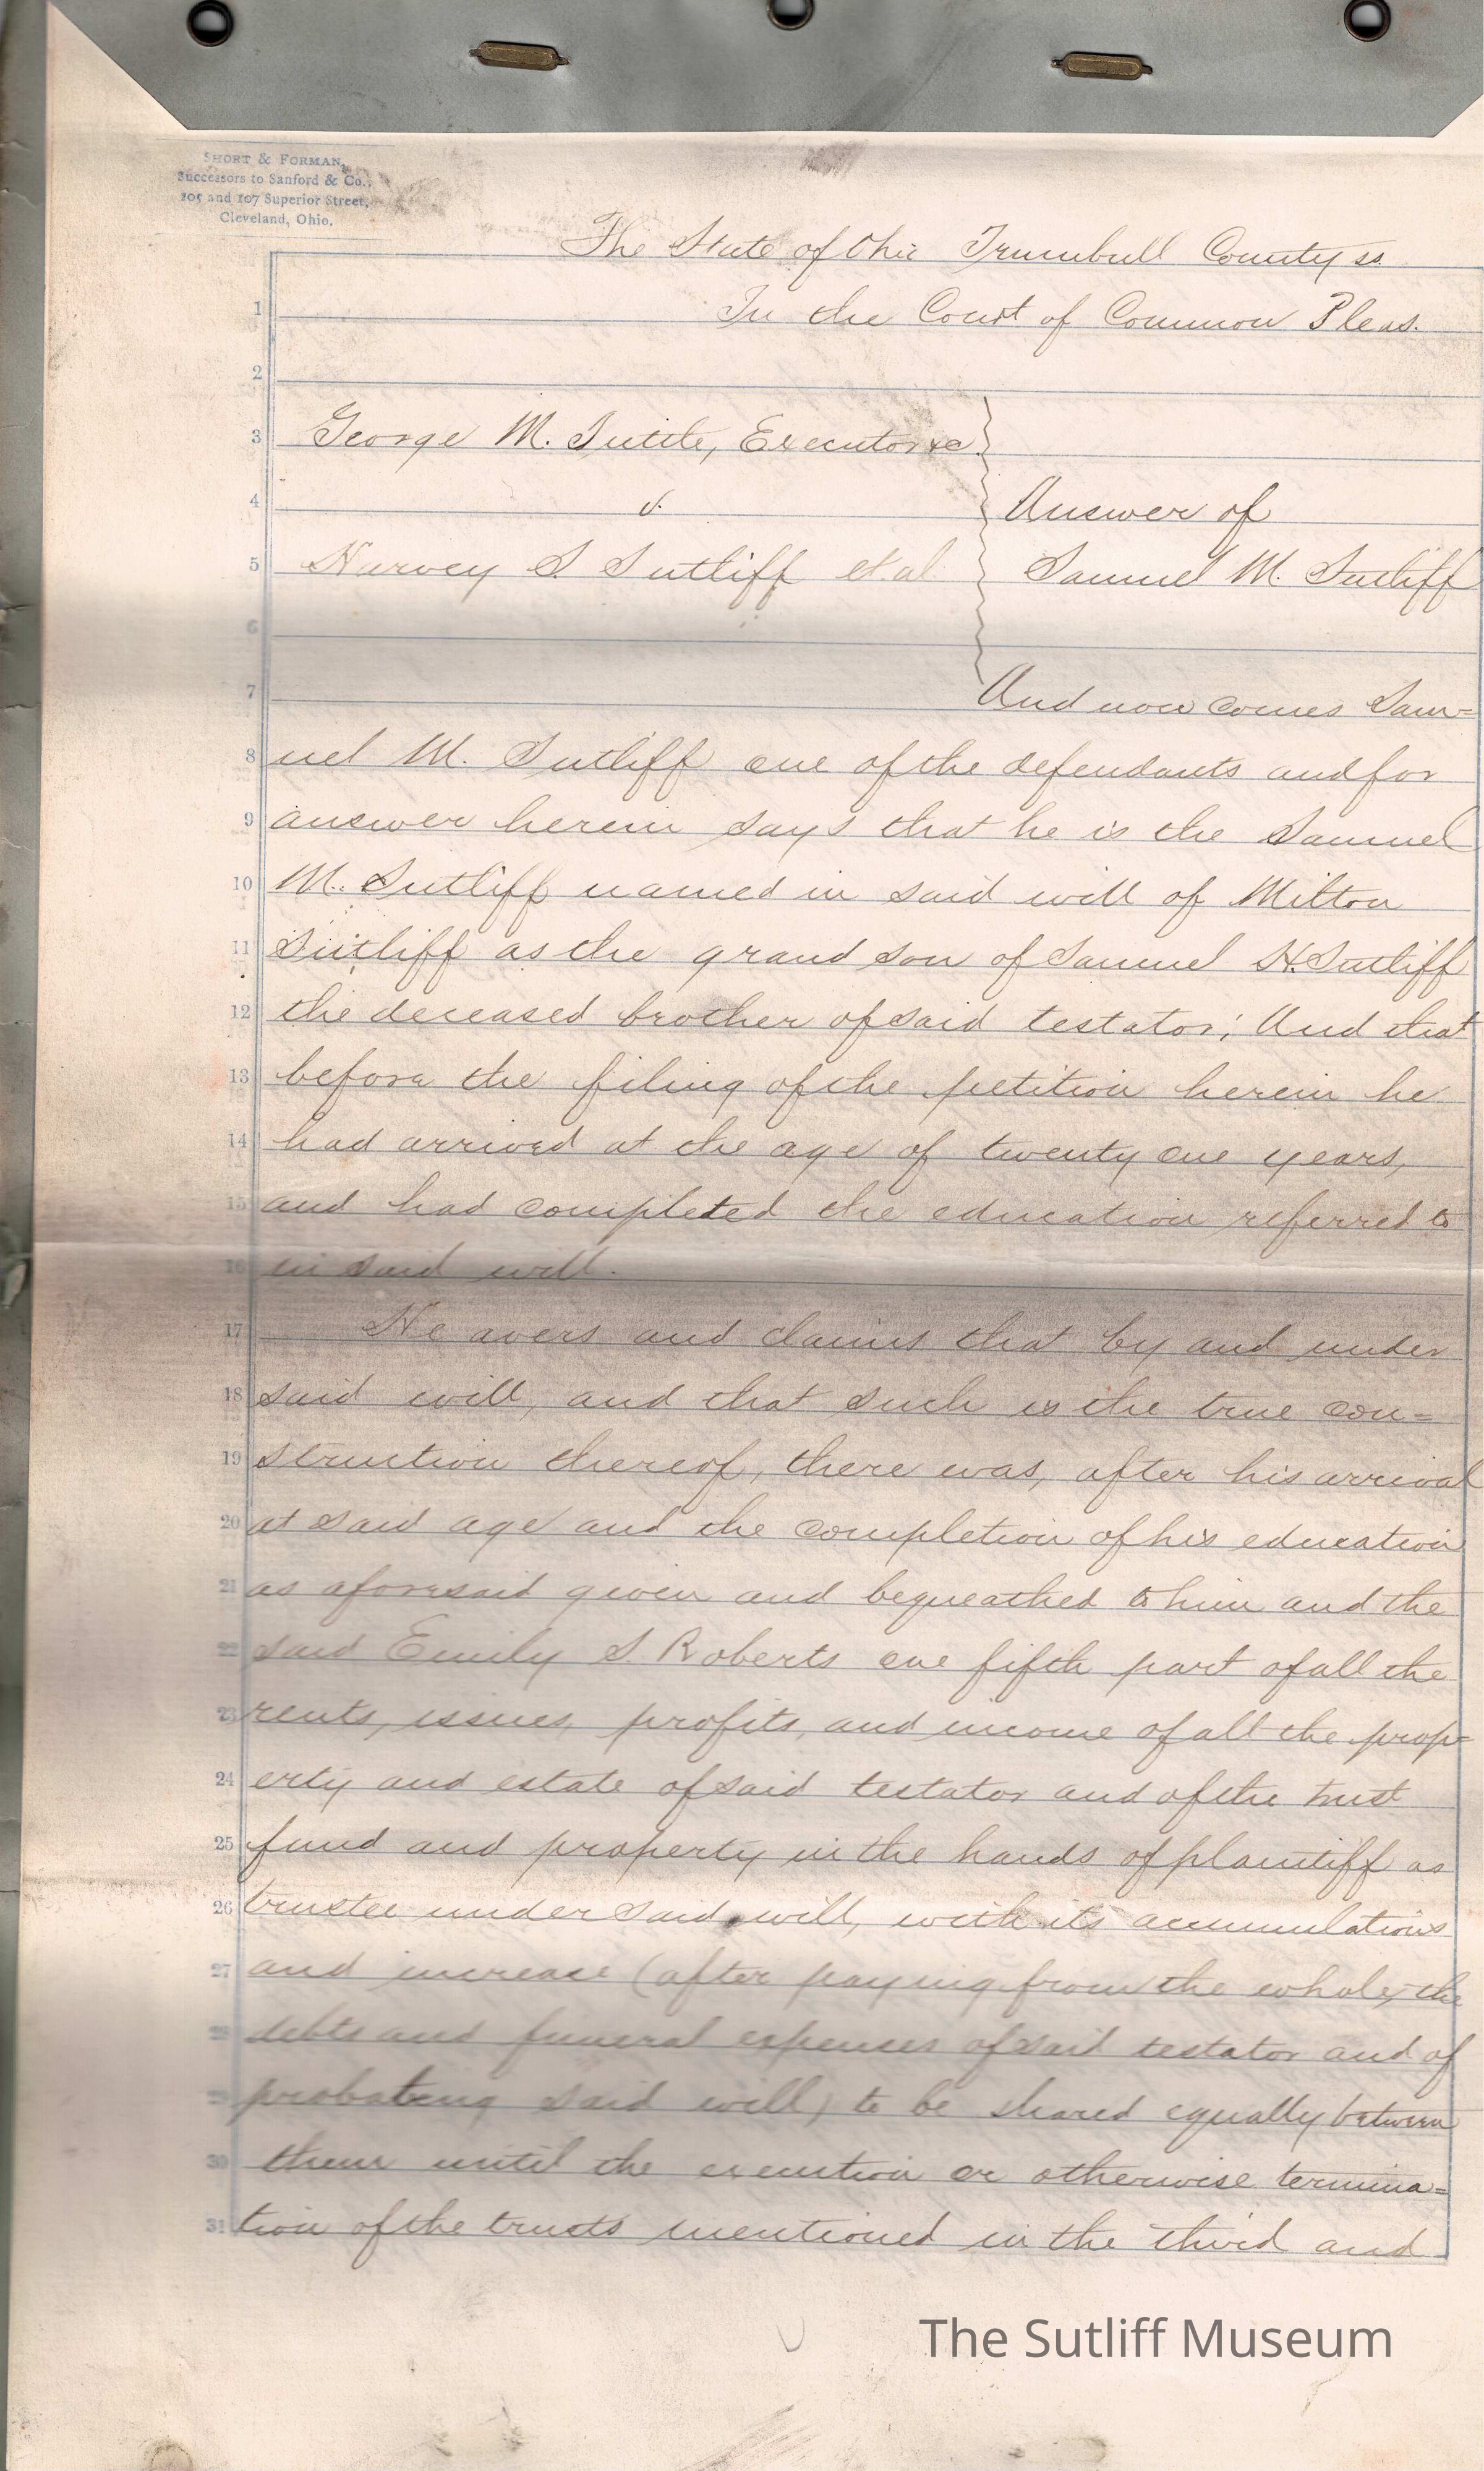 SHORT & FORMAN,
Successors to Sanford & Co.,
105 and 107 Superior Street,
Cleveland, Ohio.
The State of Ohio Trumbull County ss
1 In the Court of Common Pleas.
2
3 George M. Tuttle, Executor &c.
4 v. Answer of
5 Harvey S. Sutliff et al Samuel M. Sutliff
6
7 And now comes Sam=
8 uel M. Sutliff one of the defendants and for
9 answer herein says that he is the Samuel
10 M. Sutliff named in said will of Milton
11 Sutliff as the grand son of Samuel H. Sutliff
12 the deceased brother of said testator; And that
13 before the filing of the petition herein he
14 had arrived at the age of twenty one years,
15 and had completed the education referred to
16 in said will.
17 He avers and claims that by and under
18 said will, and that such is the true con=
19 struction thereof, there was, after his arrival
20 at said age and the completion of his education
21 as aforesaid given and bequeathed to him and the
22 said Emily S Roberts one fifth part of all the
23 rents, issues, profits, and income of all the prop=
24 erty and estate of said testator and of the trust
25 fund and property in the hands of plaintiff as
26 trustee under said will, with its accumulations
27 and increase (after paying from the whole, the
28 debts and funeral expenses of said testator and of
29 probating said will) to be shared equally between
30 them until the execution or otherwise termina=
31 tion of the trusts mentioned in the third and
The Sutliff Museum